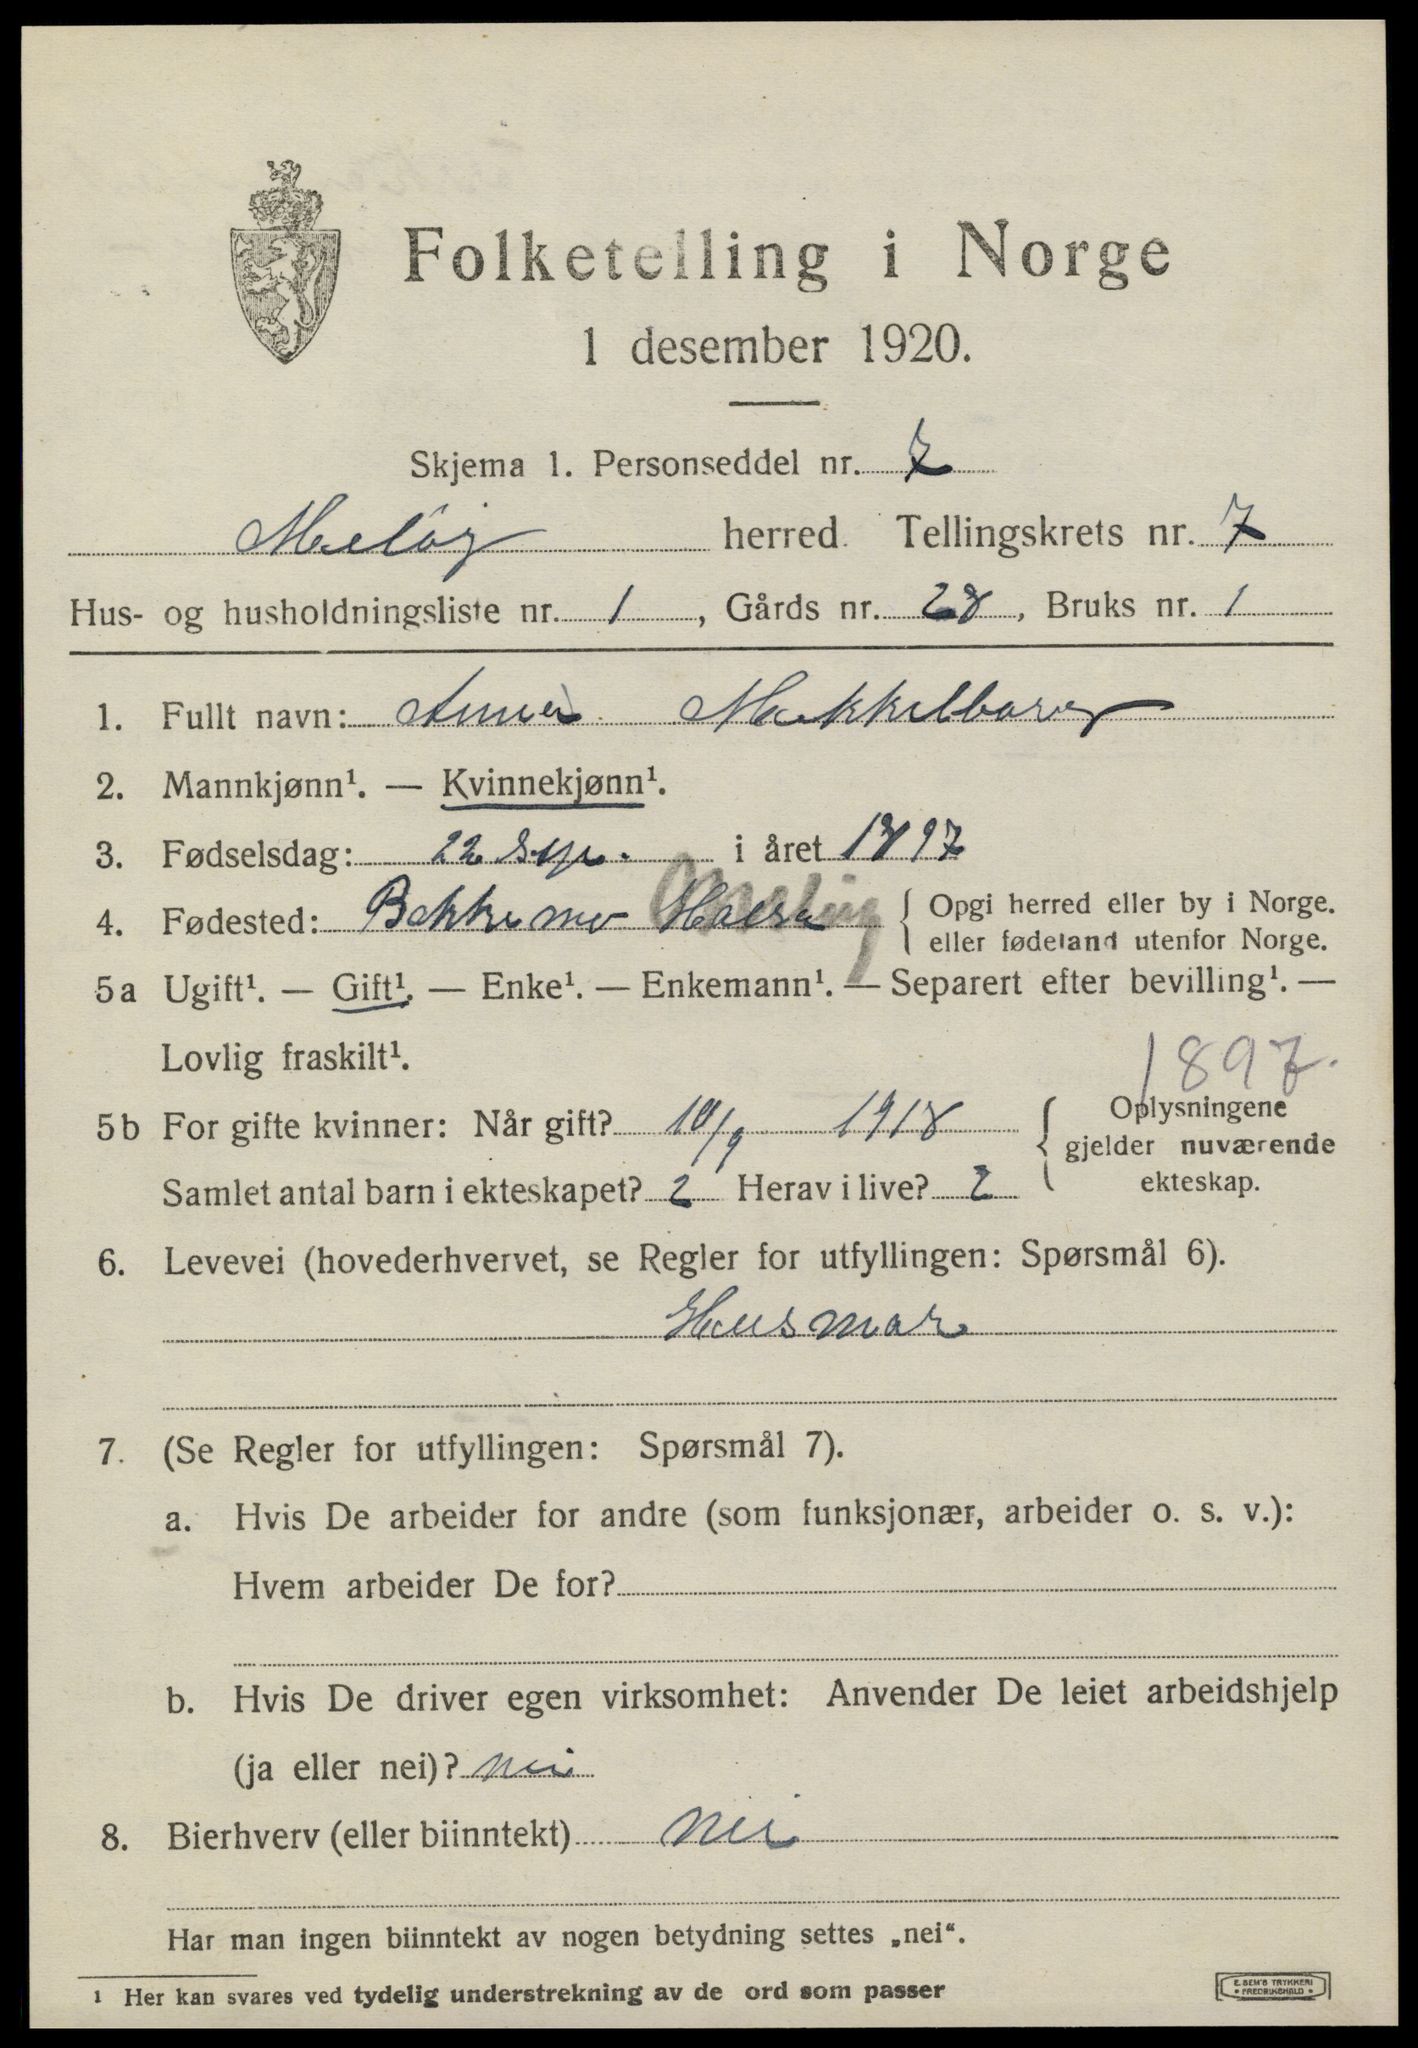 Folketelling i Norge
1 desember 1920.
Skjema 1. Personseddel nr. 7
Meløy herred. Tellingskrets nr. 7
Hus- og husholdningsliste nr. 1, Gårds nr. 28, Bruks nr. 1
1. Fullt navn: Anna Mikkelborg
2. Mannkjønn¹. — Kvinnekjønn¹.
3. Fødselsdag: 22 Sep. i året 1897
4. Fødested: Halsa Meløy { Opgi herred eller by i Norge.
eller fødeland utenfor Norge.
5a Ugift¹. — Gift¹. — Enke¹. — Enkemann¹. — Separert efter bevilling¹. —
Lovlig fraskilt¹.
1897.
5b For gifte kvinner: Når gift? 10/9 1918 { Oplysningene
gjelder nuværende
Samlet antal barn i ekteskapet? 2 Herav i live? 2 ekteskap.
6. Levevei (hovederhvervet, se Regler for utfyllingen: Spørsmål 6).
Husmor
7. (Se Regler for utfyllingen: Spørsmål 7).
a. Hvis De arbeider for andre (som funksjonær, arbeider o. s. v.):
Hvem arbeider De for?
b. Hvis De driver egen virksomhet: Anvender De leiet arbeidshjelp
(ja eller nei)? nei
8. Bierhverv (eller biinntekt) nei
Har man ingen biinntekt av nogen betydning settes „nei“.
¹ Her kan svares ved tydelig understrekning av de ord som passer
E. SEM'S TRYKKERI
• FREDRIKSHALD •